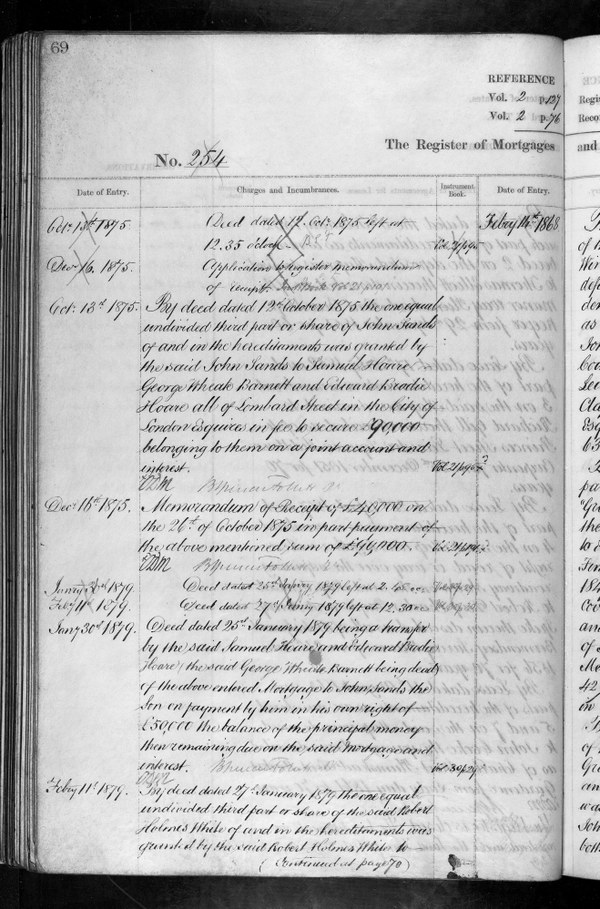 69
REFERENCE
Vol. 2 p.137
Vol. 2 p.76
The Register of Mortgages
No. 254
Date of Entry.
Charges and Incumbrances.
Instrument Book.
Date of Entry.
Octr 13th 1875
Deed dated 12. Octr 1875 left at
Febry 14th 1868
12.35 oclock
Decr 16. 1875.
Application to register memorandum
of receipt
Oct: 13th 1875.
By deed dated 12th October 1875 the one equal
undivided third part or share of John Sands
of and in the hereditaments was granted by
the said John Sands to Samuel Hoare
George Wheatle Barnett and Edward Brodie
Hoare all of Lombard Street in the City of
London Esquires in fee to secure £90,000
belonging to them on a joint account and
interest.
Decr 16th 1875.
Memorandum of Receipt of £40,000 on
the 26th of October 1875 in part payment of
the above mentioned sum of £90,000.
1879
Deed dated 25th 1879 left at 2.45
Feby 11th 1879.
Deed dated 27th 1879 left at 12.30
Jany 30th 1879.
Deed dated 25th January 1879 being a transfer
by the said Samuel Hoare and Edward Brodie
Hoare (the said George Wheatle Barnett being dead
of the above entered Mortgage to John Sands the
Son on payment by him in his own right of
£50,000 the balance of the principal money
then remaining due on the said mortgage and
interest.
Febry 11th 1879.
By deed dated 27th January 1879 the one equal
undivided third part or share of the said Robert
Holmes White of and in the hereditaments was
granted by the said Robert Holmes White to
(Continued at page 70)